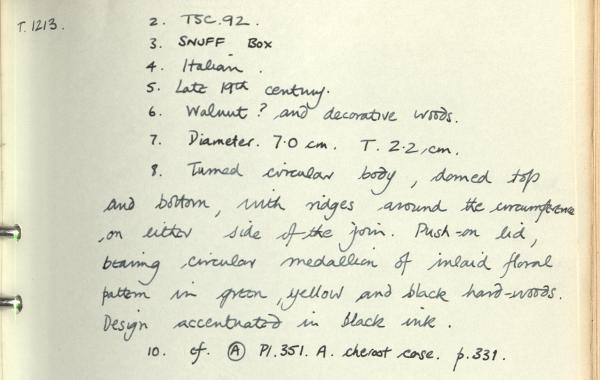 T.1213. 2. TSC.92.
3. SNUFF BOX
4. Italian.
5. Late 19th century.
6. Walnut? and decorative woods.
7. Diameter. 7.0 cm. T. 2.2 cm.
8. Turned circular body, domed top
and bottom, with ridges around the circumference
on either side of the join. Push-on lid,
bearing circular medallion of inlaid floral
pattern in green, yellow and black hard-woods.
Design accentuated in black ink.
10. cf. Ⓐ Pl.351. A. cheroot case. p.331.